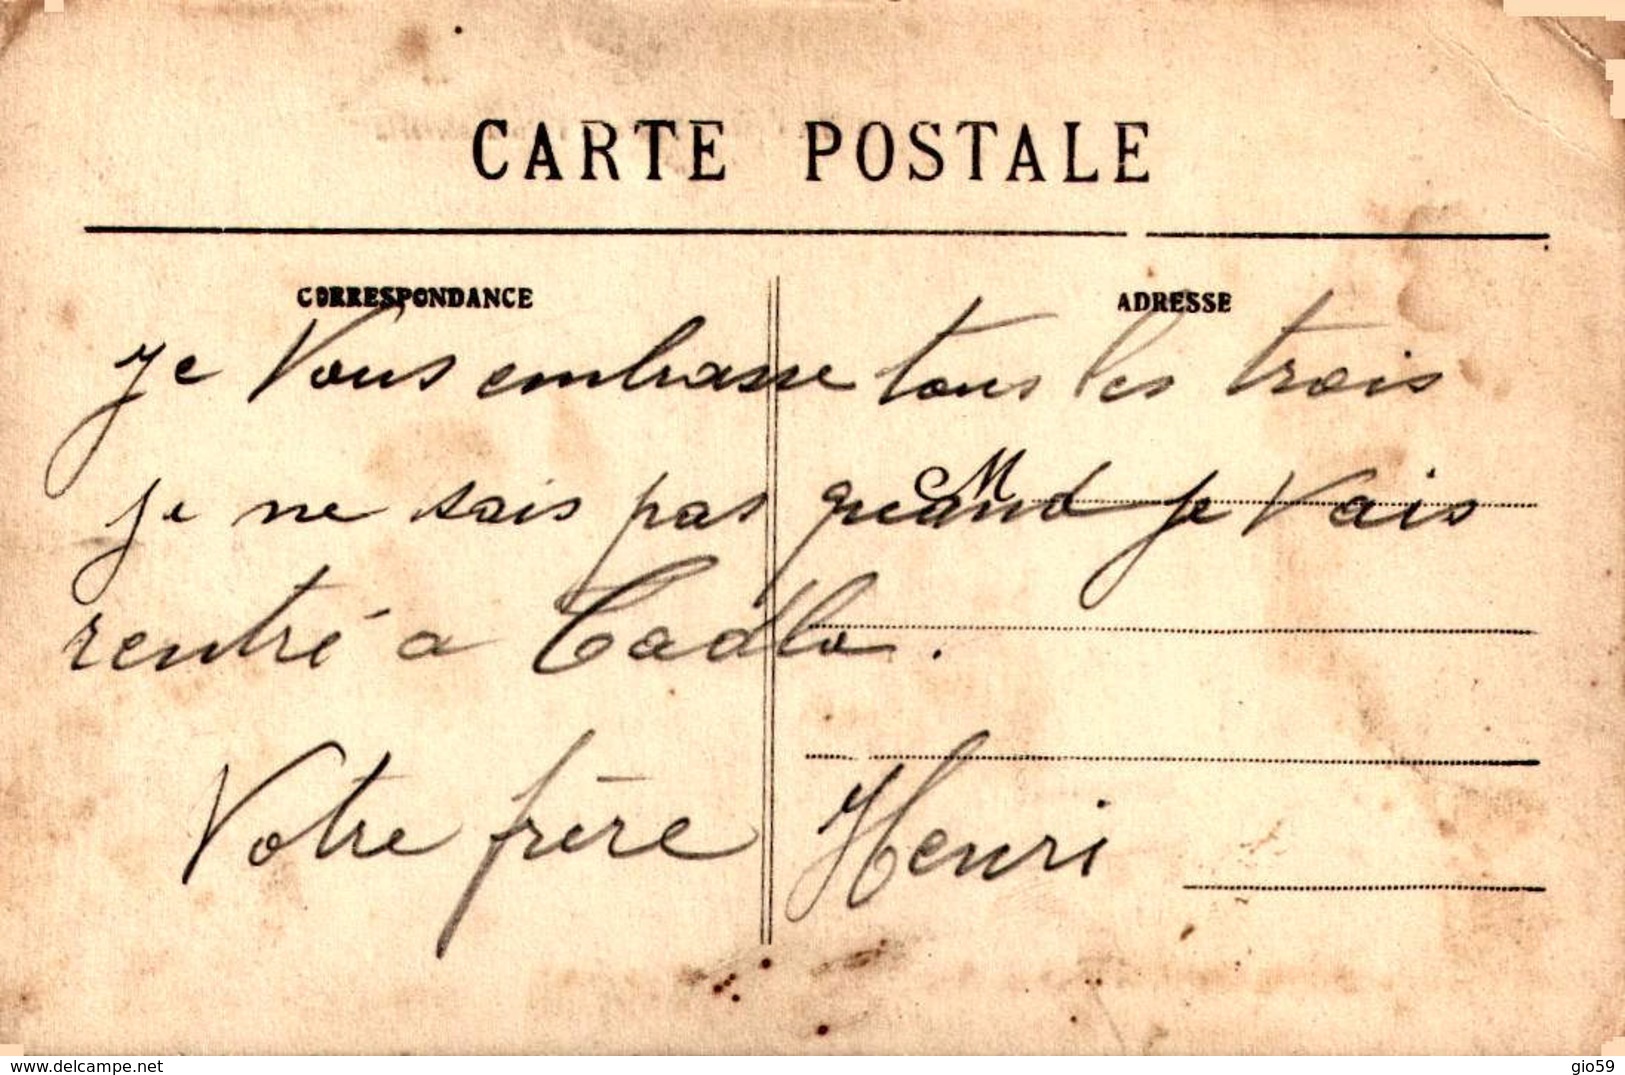 CARTE POSTALE
CORRESPONDANCE
ADRESSE
je Vous embrasse tous les trois
M
je ne sais pas quand je Vais
rentré a
Votre frère Henri
www.delcampe.net
gio59